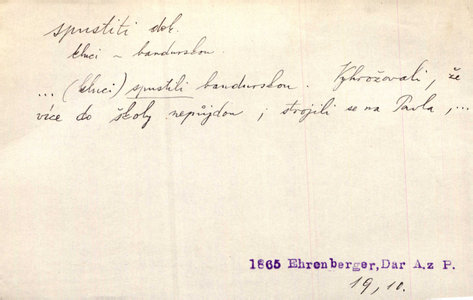 spustiti dok.
kluci ~ bandurskou.
... (kluci) spustili bandurskou. Vyhrožovali, že
více do školy nepůjdou i strojili se na Pavla, ...
1865 Ehrenberger, Dar A. z P.
19, 10.